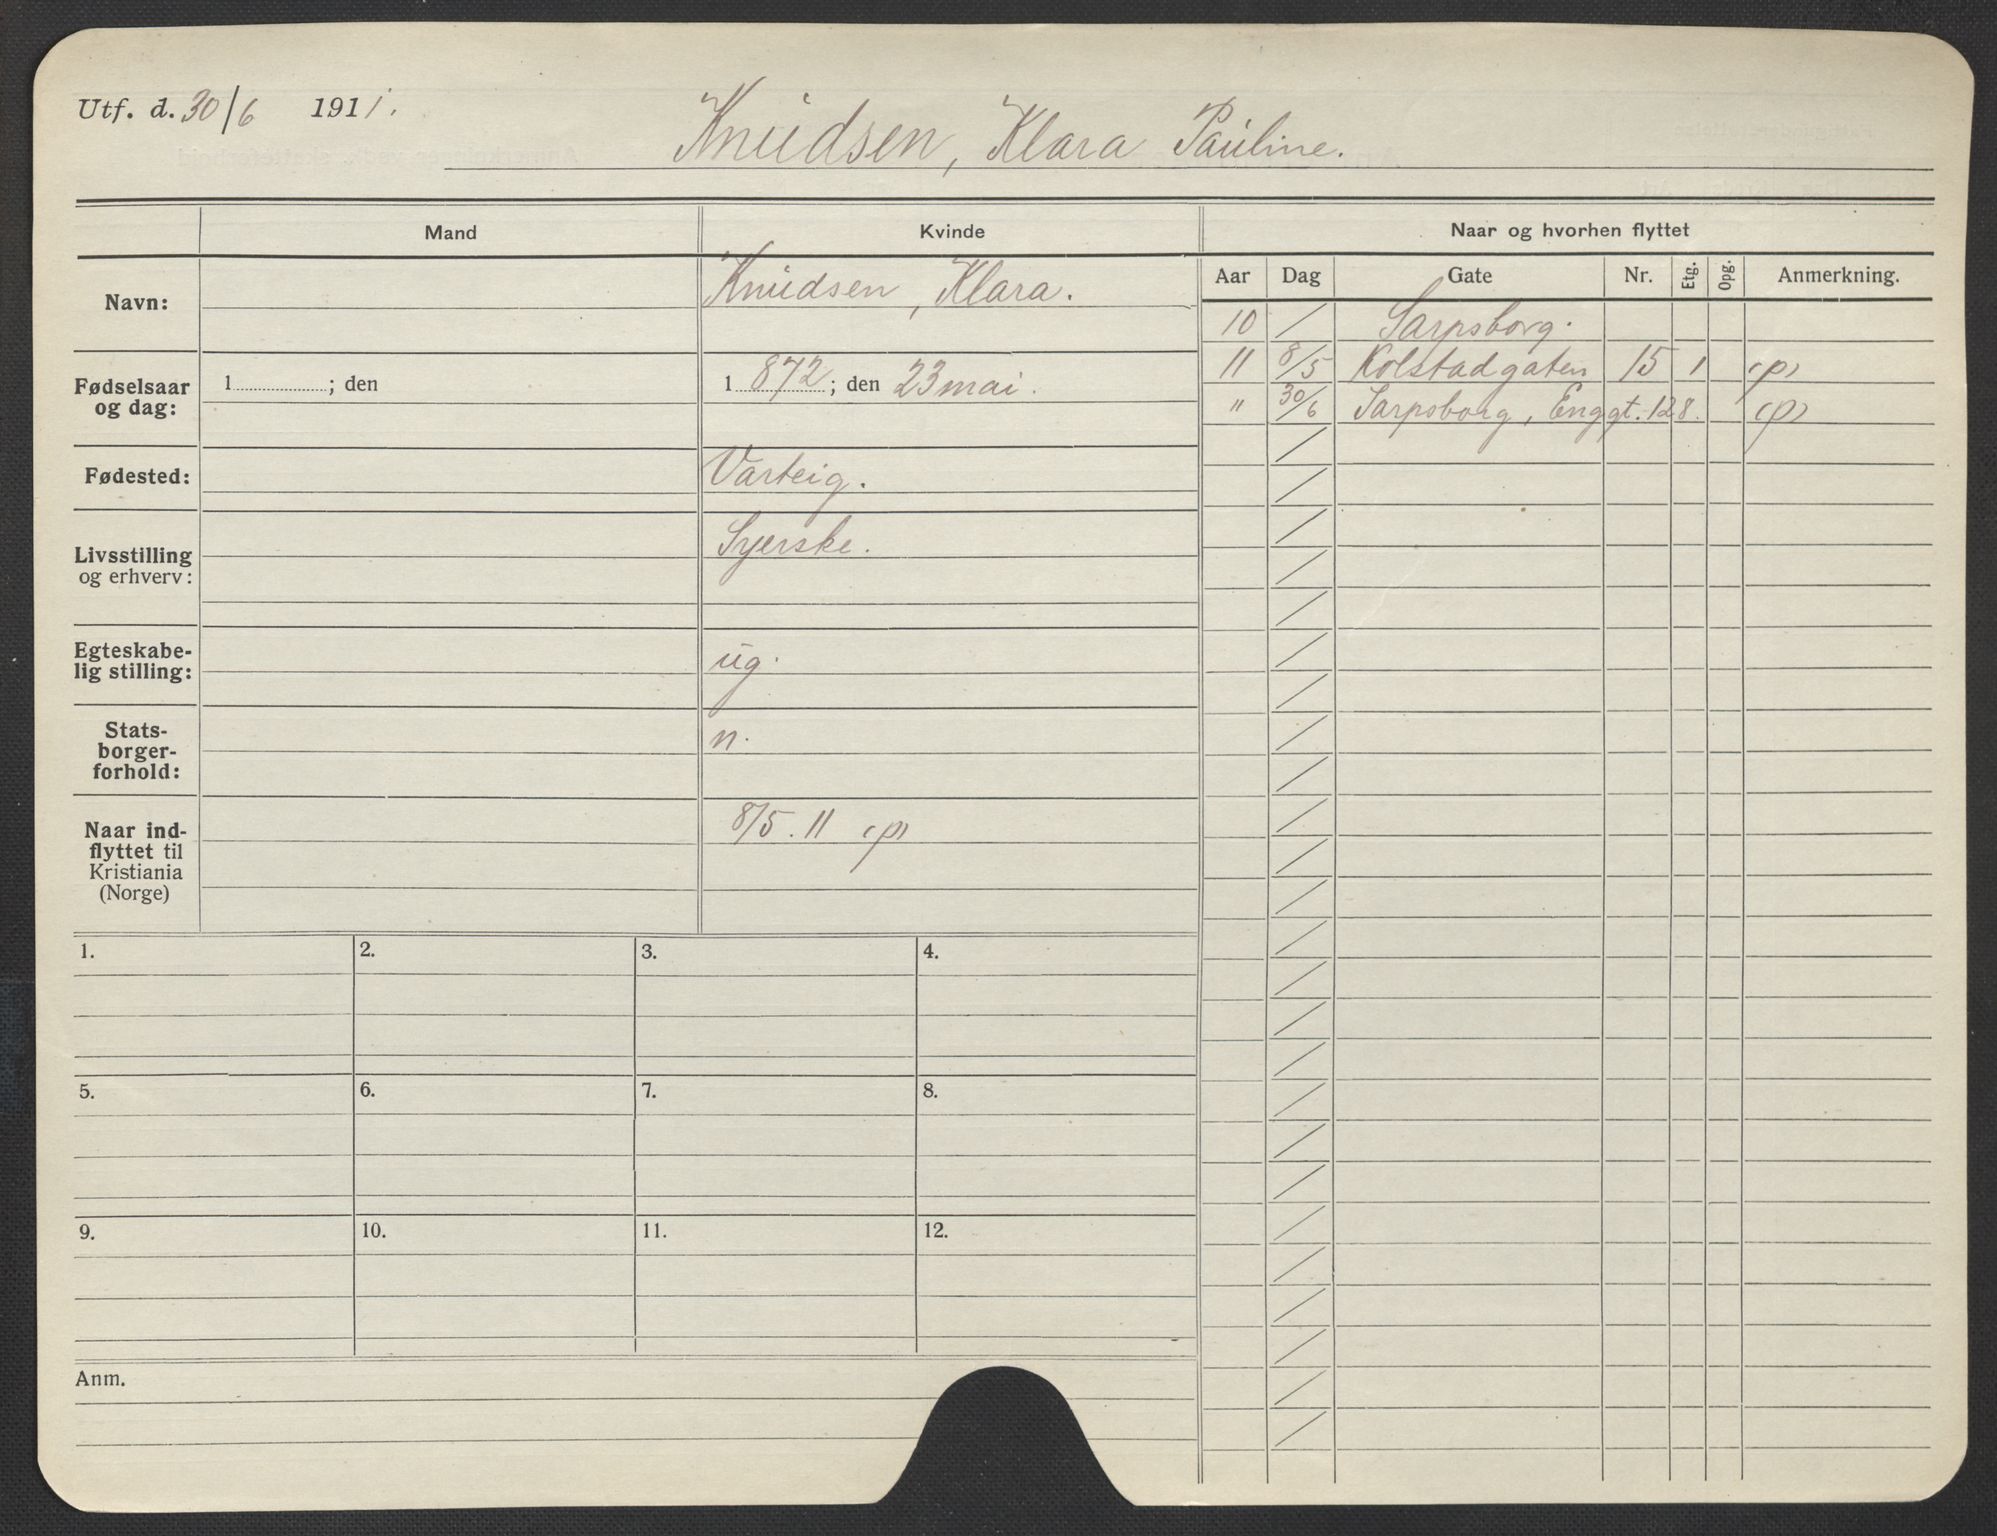 Utf. d. 30/6 1911.
Knudsen, Klara Pauline.
Mand
Kvinde
Naar og hvorhen flyttet
Aar Dag Gate Nr. Etg. Opg. Anmerkning.
Navn: Knudsen, Klara.
Fødselsaar
og dag:
1 ; den
1 872 ; den 23 mai.
Fødested: Varteig.
Livsstilling
og erhverv:
Syerske.
Egteskabe-
lig stilling:
ug.
Stats-
borger-
forhold:
n.
Naar ind-
flyttet til
Kristiania
(Norge)
8/5. 11 (p)
10 / Sarpsborg.
11 8/5 Kolstadgaten 15 1 (p)
" 30/6 Sarpsborg, Enggt. 128. (p)
1. 2. 3. 4.
5. 6. 7. 8.
9. 10. 11. 12.
Anm.